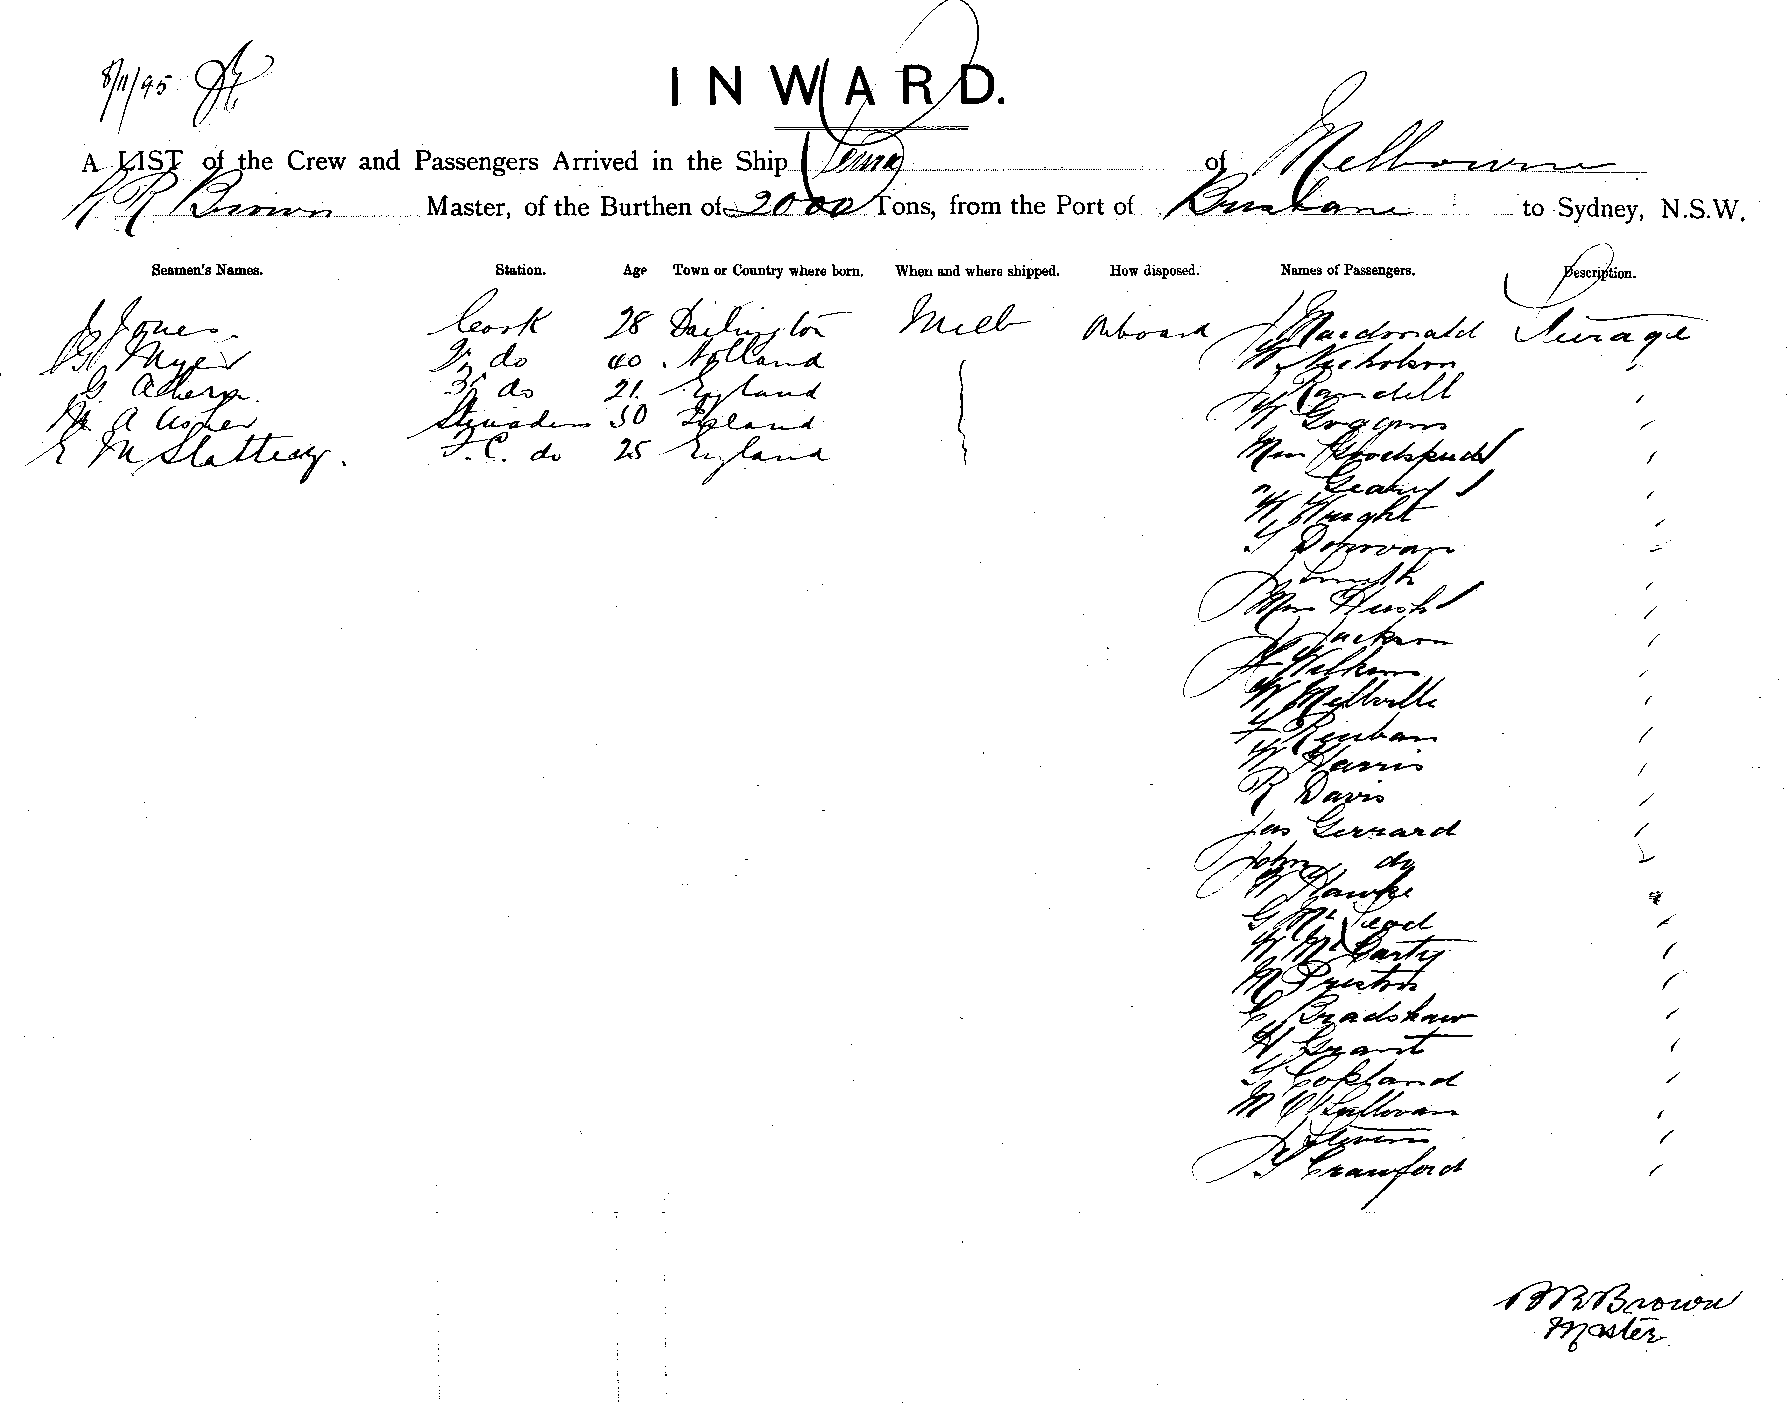 8/11/95
INWARD.
A LIST of the Crew and Passengers Arrived in the Ship of Melbourne
R Brown Master, of the Burthen of 2000 Tons, from the Port of Brisbane to Sydney, N.S.W.
Seamen's Names. Station. Age Town or Country where born. When and where shipped. How disposed. Names of Passengers. Description.
J Jones Cook 28 Darlington Melb Onboard J Macdonald Steerage
Myer 2nd do 40 Holland W Nicholson "
G. 3rd do 21 England J Randell "
A Usher 30 W "
E M Slattery. F.C. do 25 England "
Geary "
W Wright "
T Donovan "
J Smith "
Hush "
J Jackson "
H Wilkins "
W Mellville "
F Reuban "
W Harris "
R Davis "
Jas Gerrard "
John do "
W Hawke "
G McLeod "
W McCarty "
M Preston "
C Bradshaw "
H Grant "
T Copland "
M O'Sullivan "
J Stevens "
T Crawford "
Brown
Master